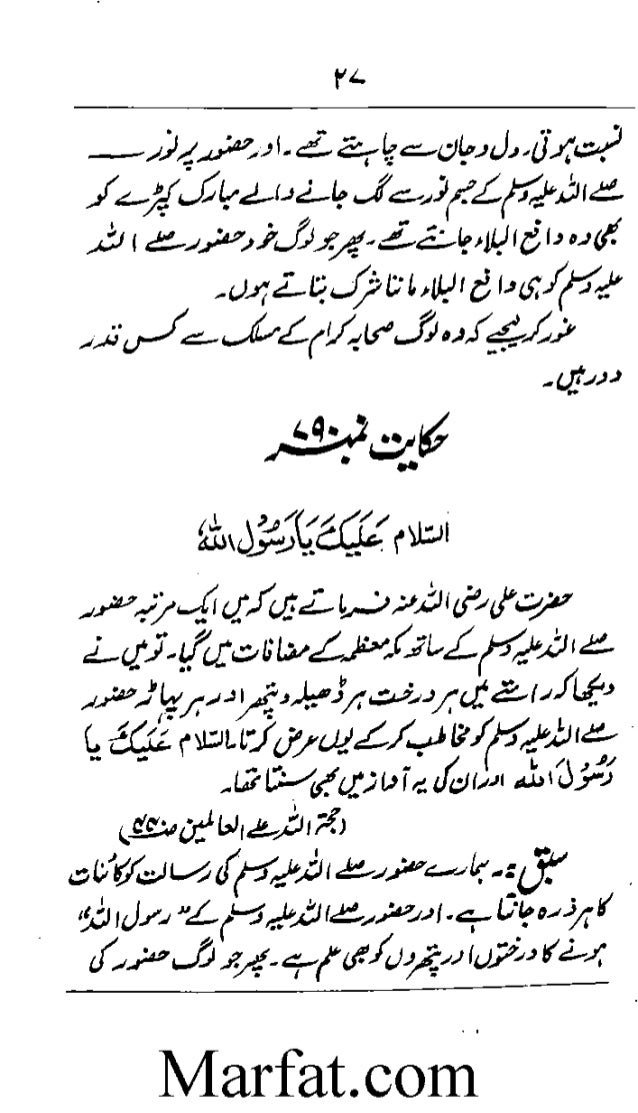 ۲۷
نسبت ہوتی۔ دل و جان سے چاہتے تھے۔ اور حضور پر نور
صلے اللہ علیہ وسلم کے جسم نور سے لگ جانے والے مبارک کپڑے کو
بھی وہ دافع البلاء جانتے تھے۔ پھر جو لوگ خود حضور صلے اللہ
علیہ وسلم کو ہی دافع البلاء ماننا شرک بتاتے ہوں۔
غور کر لیجیے کہ وہ لوگ صحابہ کرام کے مسلک سے کس قدر
دور ہیں۔
حکایت نمبر ۷۹۰
السّلام عَلَیْکَ یَا رَسُوْل اللّٰہ
حضرت علی رضی اللہ عنہ فرماتے ہیں کہ میں ایک مرتبہ حضور
صلے اللہ علیہ وسلم کے ساتھ مکہ معظمہ کے مضافات میں گیا۔ تو میں نے
دیکھا کہ راستے میں ہر درخت ہر ڈھیلہ و پتھر اور ہر پہاڑ حضور
صلے اللہ علیہ وسلم کو مخاطب کر کے یوں عرض کرتا۔ السّلام عَلَیْکَ یا
رَسُوْلَ اللہ اور ان کی یہ آواز میں بھی سنتا تھا۔
(حجۃ اللہ علے العالمین صـ۴۴)
سبق :۔ ہمارے حضور صلے اللہ علیہ وسلم کی رسالت کو کائنات
کا ہر ذرہ جانتا ہے۔ اور حضور صلے اللہ علیہ وسلم کے "رسول اللہ"
ہونے کا درختوں اور پتھروں کو بھی علم ہے۔ پھر جو لوگ حضور کی
Marfat.com